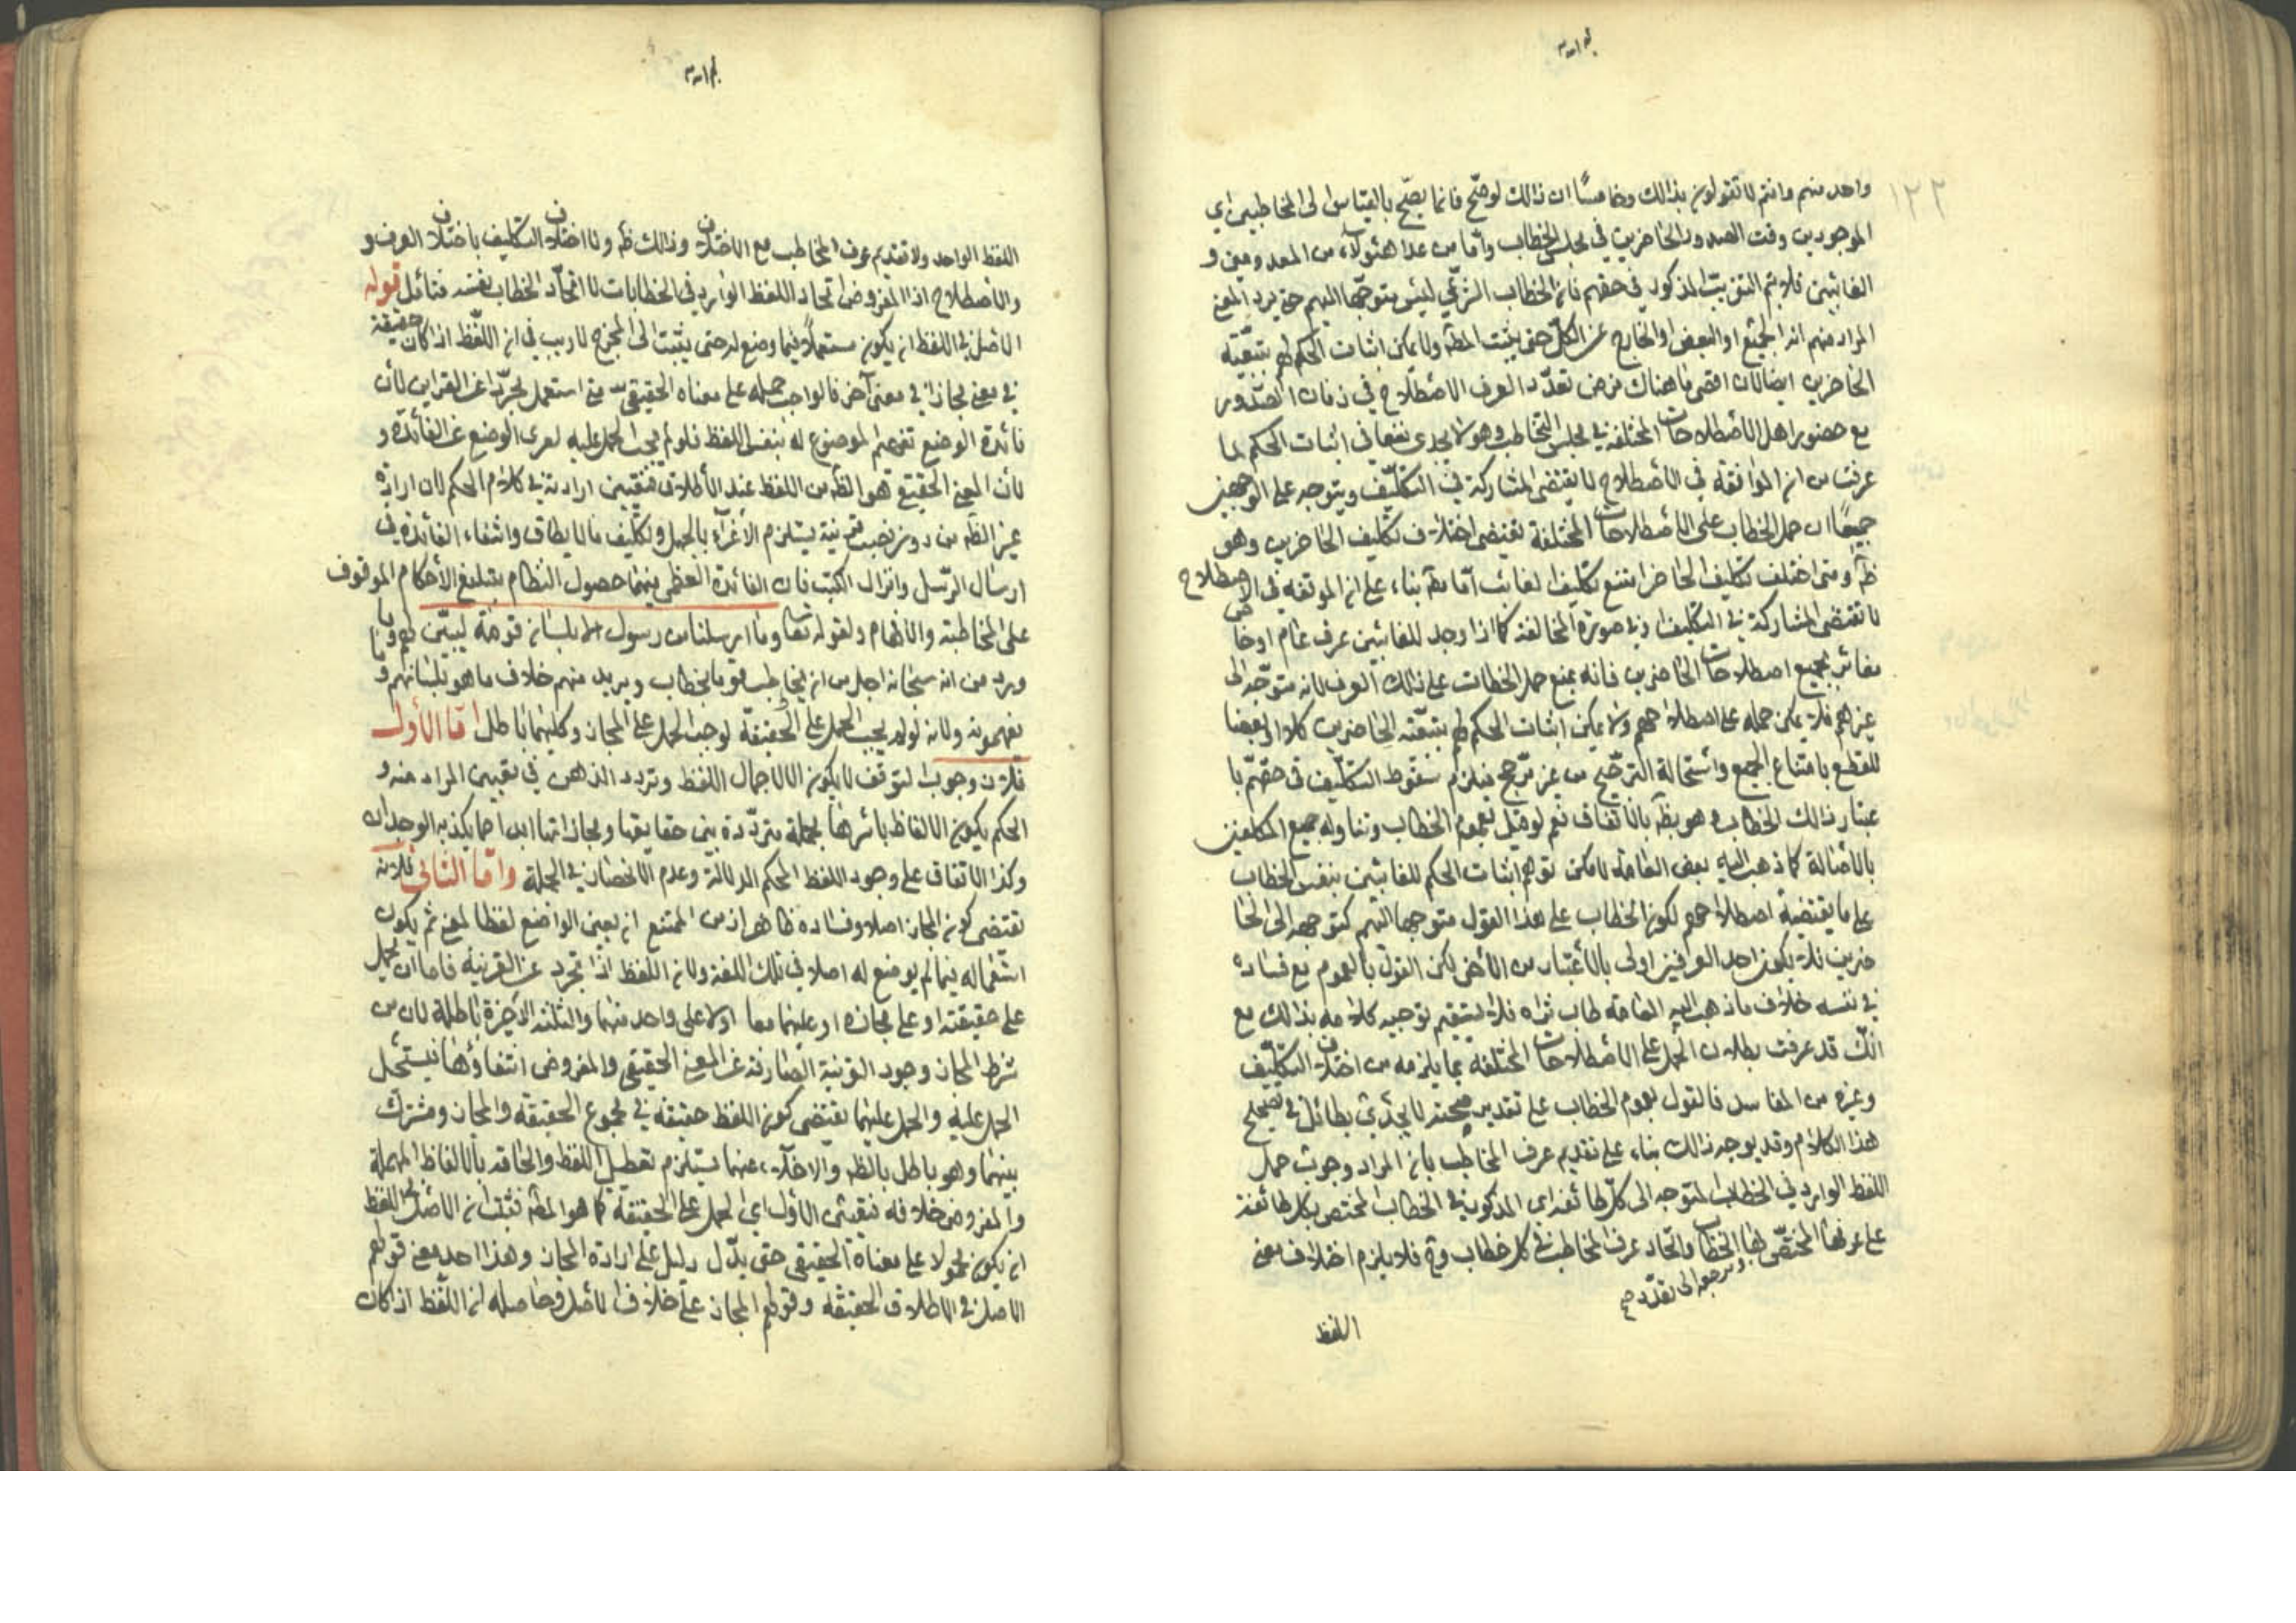 ۱۲۲
واحد منهم وانتم لا تقولون بذالك وخامسًا ان ذالك لوصحّ فانما يصّح بالقياس الى المخاطبين اي
الموجودين وقت الصدور الحاضرين في مجلس الخطاب وامّا من عدا هئولآء من المعدومين و
الغائبين فلا يتم التقريب المذكور في حقهم فان الخطاب الشرعّي ليس متوجّها اليهم حتى يرد المعنى
المراد منهم انه الجميع او البعض او الخارج عن الكلّ حتى يثبت المطه ولا يمكن اثبات الحكم لهم بتبعيّته
الحاضرين ايضا لان اقصى ما هناك فرض تعدّد العرف الاصطلاح في زمان الصّدور
مع حضور اهل الأصطلاحات المختلفه في مجلس التخاطب وهو لا يجدى نفعا في اثبات الحكم لما
عرفت من ان الموافقه في الأصطلاح لا يقتضى المشاركة في التكليف ويتوجه على الوجهين
جميعًا ان حمل الخطاب على الاصطلاحات المختلفة تقتضى اختلاف تكليف الحاضرين وهو
ظه ومتى اختلف تكليف الحاضر امتنع تكليف الغائب امّا مطه بناء على ان الموتفه في الاصطلاح
لا تقتضى المشاركة في التكليف او في صورة المخالفة كما اذا وجد للغائبين عرف عام او خاص
مغائر لجميع اصطلاحات الحاضرين فانه يمنع حمل الخطاب على ذالك العرف لانه متوجّه الى
غيرهم فلا يمكن حمله على اصطلاحهم ولا يمكن اثبات الحكم لهم بتبعيّته الحاضرين كلا او بعضا
للقطع بامتناع الجميع واستحالة الترجيح من غير مرّجح فيلزم سقوط التكليف في حقهّم با
عتبار ذالك الخطاب وهو بطه بالاتفاف نعم لو قيل بعموم الخطاب وتناوله جميع المكلفين
بالأصالة كما ذهب اليه بعض العامّه لامكن توهم اثبات الحكم للغائبين بنفس الخطاب
على ما يقتضيه اصطلاحهم لكون الخطاب على هذا القول متوجها اليهم كتوجهه الى الحا
ضرين فلا يكون احد العرفين اولى بالأعتبار من الأخر لكن القول بالعموم مع فساده
في نفسه خلاف ما ذهب اليه العلامه طاب ثراه فلا يستقيم توجيه كلامه بذالك مع
انّك قد عرفت بطلان الحمل على الاصطلاحات المختلفه بما يلزمه من اختلاف التكليف
وغيره من المفاسد فالقول بعموم الخطاب على تقدير صحته لا يجدي بطائل في تصحيح
هذا الكلام وقد يوجه ذالك بناء على تقديم عرف المخاطب بان المراد وجوب حمل
اللفظ الوارد في الخطاب المتوجه الى كلّ طائفه اي المذكورين في الخطاب المختص بكل طائفة
على عرفها المختصّ لها الخطاب واتّحاد عرف المخاطب في كل خطاب وح فلا يلزم اختلاف معنى
ومرجعه الى تعدّد صح
اللفظ
اللفظ الواحد ولا تقديم عرف المخاطب مع الاختلاف وذالك ظه ولا اختلاف التكليف باختلاف العرف و
والأصطلاح اذا المفروض اتحاد اللفظ الوارد في الخطابات لا اتحّاد الخطاب بنفسه فتأمل قوله
الاصل في اللفظ ان يكون مستعملًا فيما وضع له حتى يثبت المخرج لا ريب في ان اللّفظ اذا كان حقيقة
في معنى مجاز في معنى آخر فالواجب حمله على معناه الحقيقي متى استعمل مجرّدا عن القراين لأن
فائدة الوضع تفهيم الموضوع له بنفس اللفظ فلو لم يجب الحمل عليه لعرى الوضع عن الفائدة و
لأن المعنى الحقيقي هو الظه من اللفظ عند الأطلاق فيتعيّن ارادته في كلام الحكيم لان ارادة
غير الظه من دون نصب قرينة يستلزم الأغرآء بالجهل وتكليف ما لا يطاق وانتفاء الفائدة في
ارسال الرّسل وانزال الكتب فان الفائدة العظمى منهما حصول النظام بتبليغ الأحكام الموقوف
على المخاطبة والافهام ولقوله تعا وما ارسلنا من رسول الا بلسان قومه ليبيّن لهم وما
ورد من انه سبحانه اجل من ان يخاطب قوما بخطاب ويريد منهم خلاف ما هو بلسانهم وما
يفهمونه ولانه لو لم يجب الحمل على الحقيقة لوجب الحمل على المجاز وكليهما باطل امّا الأول
فلان وجوب التوقف لا يكون الا لاجمال اللفظ وتردد الذهن في تعيين المراد منه و
الحكم بكون الالفاظ باسرها مجملة متردّدة بين حقايقها ومجازاتها ابدا مما يكذبه الوجدان
وكذا الاتفاق على وجود اللفظ المحكم الدلالة وعدم الانحصار في الجملة وامّا الثاني فلانه
تقتضى كون المجاز اصلا وفساده ظاهر اذ من الممتنع ان يعين الواضع لفظا لمعنى ثم يكون
استعماله فيما لم يوضع له اصلا في تلك اللغة ولان اللفظ اذا تجرد عن القرينة فاما ان يحمل
على حقيقته او على مجازه او عليهما معا او لا على واحد منهما والثلثة الأخيرة باطلة لان من
شرط المجاز وجود القرنية الصارفة عن المعنى الحقيقي والمفروض انتفاؤها فيستحيل
الحمل عليه والحمل عليهما تقتضى كون اللفظ حقيقة في مجموع الحقيقة والمجاز ومشترك
بينهما وهو باطل بالظه والاخلآء عنهما يستلزم تعطيل اللفظ والحاقه بالالفاظ المهملة
والمفروض خلافه فبقيت الأول اي الحمل على الحقيقة كما هو المطه فثبت ان الأصل في اللفظ
ان يكون محمولا على معناه الحقيقي حتى يدّل دليل على ارادة المجاز وهذا احد معنى قولهم
الاصل في الاطلاق الحقيقه وقولهم المجاز على خلاف الأصل وحاصله ان اللّفظ اذا كان